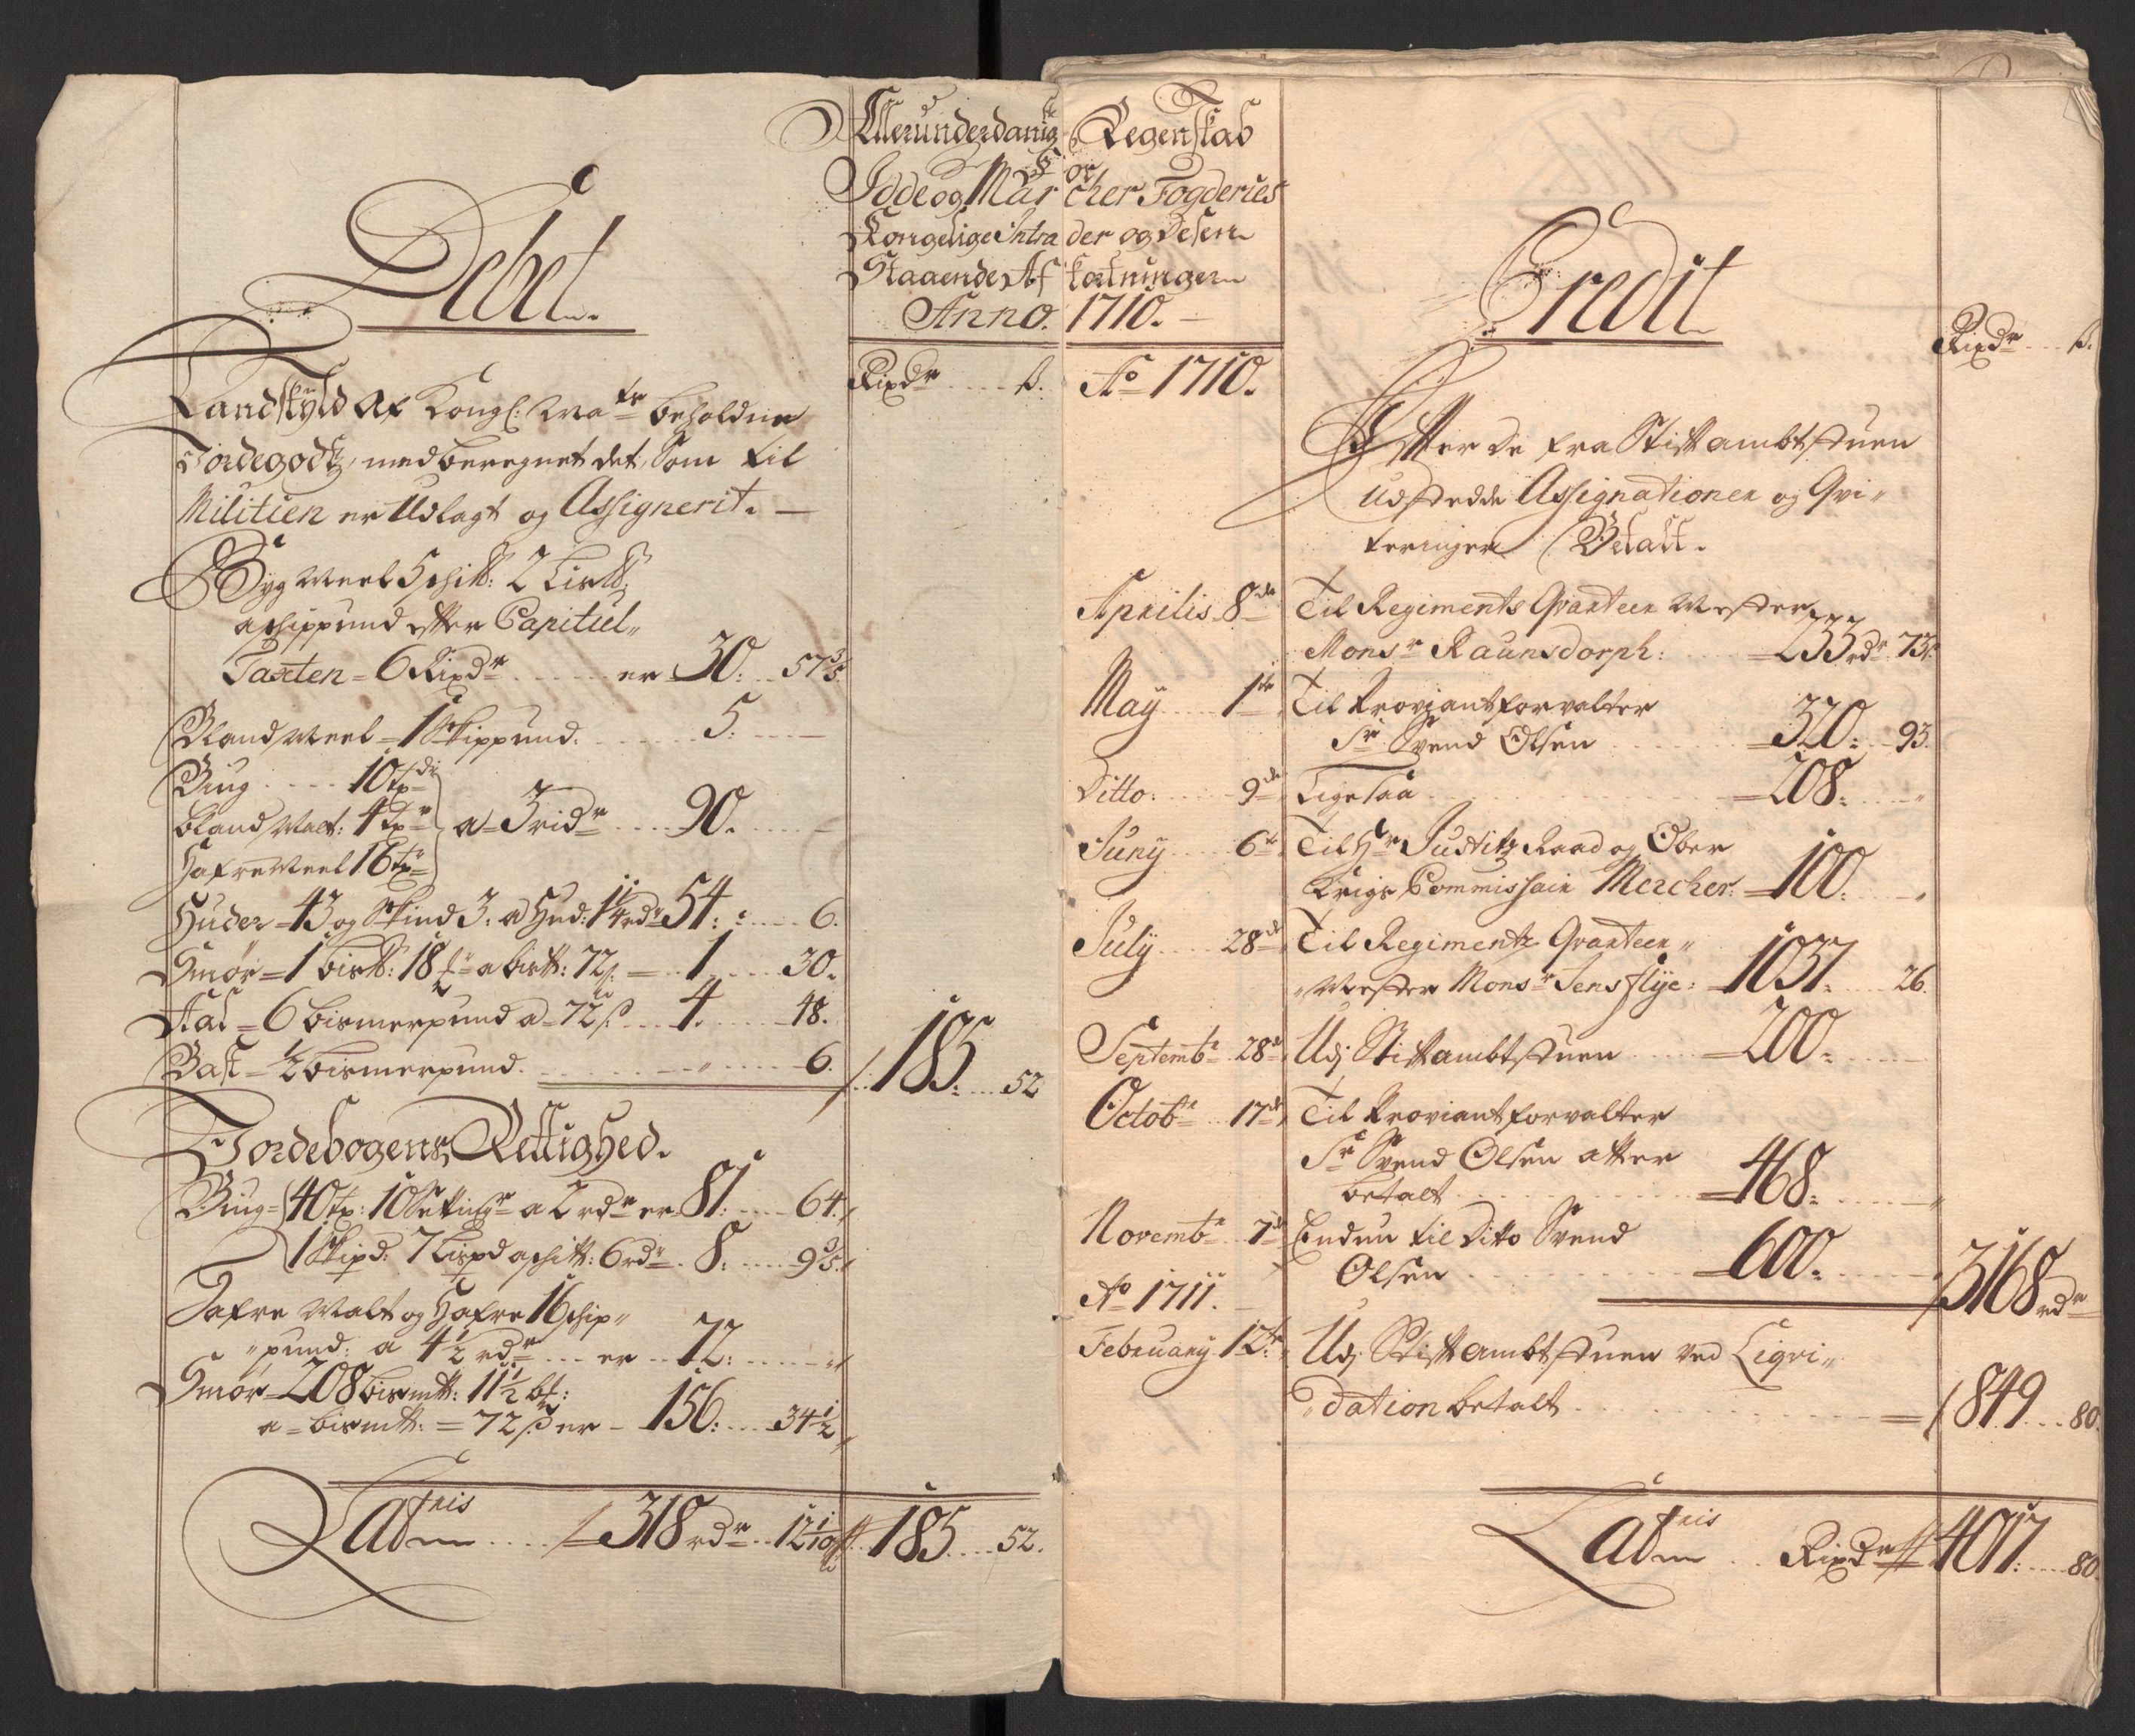 Debet.
Allerunderdanigste Regenskab
Idde og Marcher Fogderies
Kongelige Intrader og desen
Staaende Afkortninger
Anno. 1710.
Rixdr ß.
Landskyld Af Kongl: Maytt beholdne
Jordegodtz, medberegnet det, Som til
Militien er Udlagt og Assignerit.
Byg Meel 5 ski℔: 2 Lis℔:
a skippund effter Capitul,,
Taxten = 6 Rixdr er 30: 57 3/5.
Bland Meel = 1 Skippund. 5:
Biug 10 tr
bland Malt: 4 tr a = 3 ridr 90.
Hafre Meel 16 tr
Huder = 43 og Skind 3: a Hud: 1 1/4 rdr 54: 6.
Smør = 1 bis℔: 18 a bis℔: 72 ß: 1. 30.
Aal = 6 bismerpund a = 72 ß 4. 48.
Bast = 1/2 bismerpund. 6.
185: 52
Jordebogens Rettighed.
Biug = 40 tr: 10 Settinger a 2 rdr er 81: 64.
1 Skipd: 7 Lispd a ski℔: 6 rdr 8: 9 3/5.
Hafre Malt og Hafre 16 skip,,
,,pund: a 4 1/2 rdr er 72:
Smør = 208 bism℔: 11 1/2
a = bism℔: = 72 ß er 156: 34 1/2
Lateris 318 rdr 12 1/10 185 52.
Credit
Rixdr ß.
Ao 1710.
Effter de fra Stiftambtstuen
Udstedde Assignationer og Qvi,,
teringer Betalt.
Aprilis 8de Til Regiments Qvarteer Mester
Monsr Raunsdorph: 233 rdr 73 ß
May 1te Til Proviantforvalter
Sr Svend Olsen 320: 93.
Ditto: 9de Ligesaa 208:
Juny 6te Til Hr Justitz Raad og Ober
Krigs Commissair Mercher. 100:
July 28de Til Regimentz Qvarteer,,
,,Mester Monsr Jens Flye: 1037: 26.
Septembr 28de Udj Stiftambtstuen 200:
Octobr 17de Til Proviantforvalter
Sr Svend Olsen atter
betalt 468:
Novembr 7de Endnu til Ditto Svend
Olsen 600: 3168 rdr
Ao 1711.
February 12te Udj Stiftambtstuen ved Liqvi,,
,,dation betalt 849 80.
Lateris Rixdr 4017: 80.